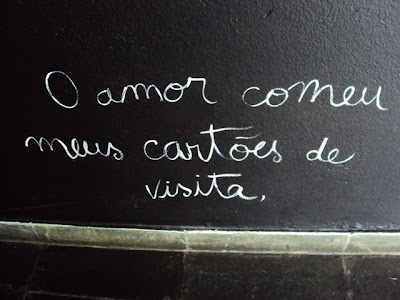 O amor comeu
meus cartões de
visita,